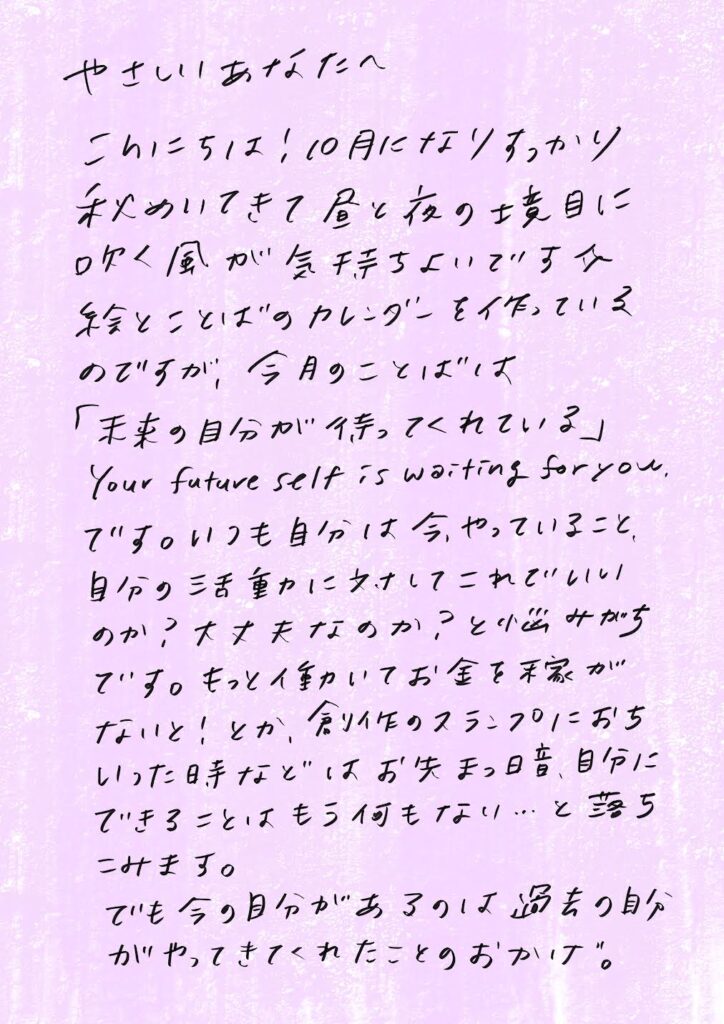 やさしいあなたへ
こんにちは！10月になりすっかり
秋めいてきて昼と夜の境目に
吹く風が気持ちよいです☆
絵とことばのカレンダーを作っている
のですが、今月のことばは
「未来の自分が待ってくれている」
Your future self is waiting for you.
です。いつも自分は今、やっていること、
自分の活動に対してこれでいい
のか？大丈夫なのか？と悩みがち
です。もっと働いてお金を稼が
ないと！とか、創作のスランプにおち
いった時などはお先まっ暗、自分に
できることはもう何もない…と落ち
こみます。
でも今の自分があるのは過去の自分
がやってきてくれたことのおかげ。